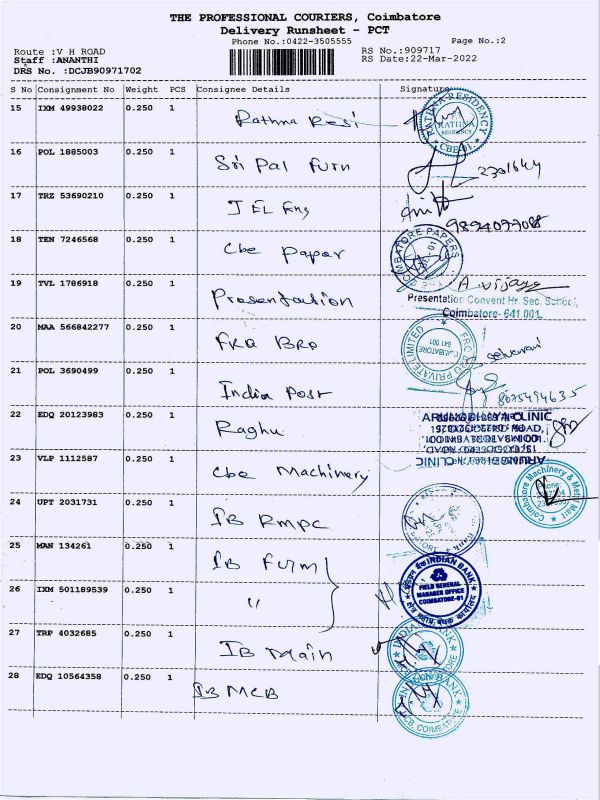 THE PROFESSIONAL COURIERS, Coimbatore
Delivery Runsheet - PCT
Phone No.:0422-3505555 Page No.:2
Route :V H ROAD RS No.:909717
Staff :ANANTHI RS Date:22-Mar-2022
DRS No. :DCJB90971702
S No Consignment No Weight PCS Consignee Details Signature
15 IXM 49938022 0.250 1 Rathna Resi RATHNA RESIDENCY RATHNA RESIDENCY CBE-01
16 POL 1885003 0.250 1 Sri Pal Furn 2301644
17 TRZ 53690210 0.250 1 JEL Eng
18 TEN 7246568 0.250 1 Cbe Paper COIMBATORE PAPERS
19 TVL 1786918 0.250 1 Presentation A. vijaya
Presentation Convent Hr. Sec. School,
Coimbatore- 641 001.
20 MAA 566842277 0.250 1 FRO BRO PRIVATE LIMITED COIMBATORE 641 001 selvarani
21 POL 3690499 0.250 1 India Post 8075494635
22 EDQ 20123983 0.250 1 Raghu CLINIC
23 VLP 1112587 0.250 1 Cbe Machinery Coimbatore Machinery & Metal Mart
24 UPT 2031731 0.250 1 IB RMPC
25 MAN 134261 0.250 1 IB Furm INDIAN BANK
FIELD GENERAL
MANAGER OFFICE
COIMBATORE-01
26 IXM 501189539 0.250 1 "
27 TRP 4032685 0.250 1 IB Main INDIAN BANK
28 EDQ 10564358 0.250 1 IB MCB INDIAN BANK MCB. COIMBATORE